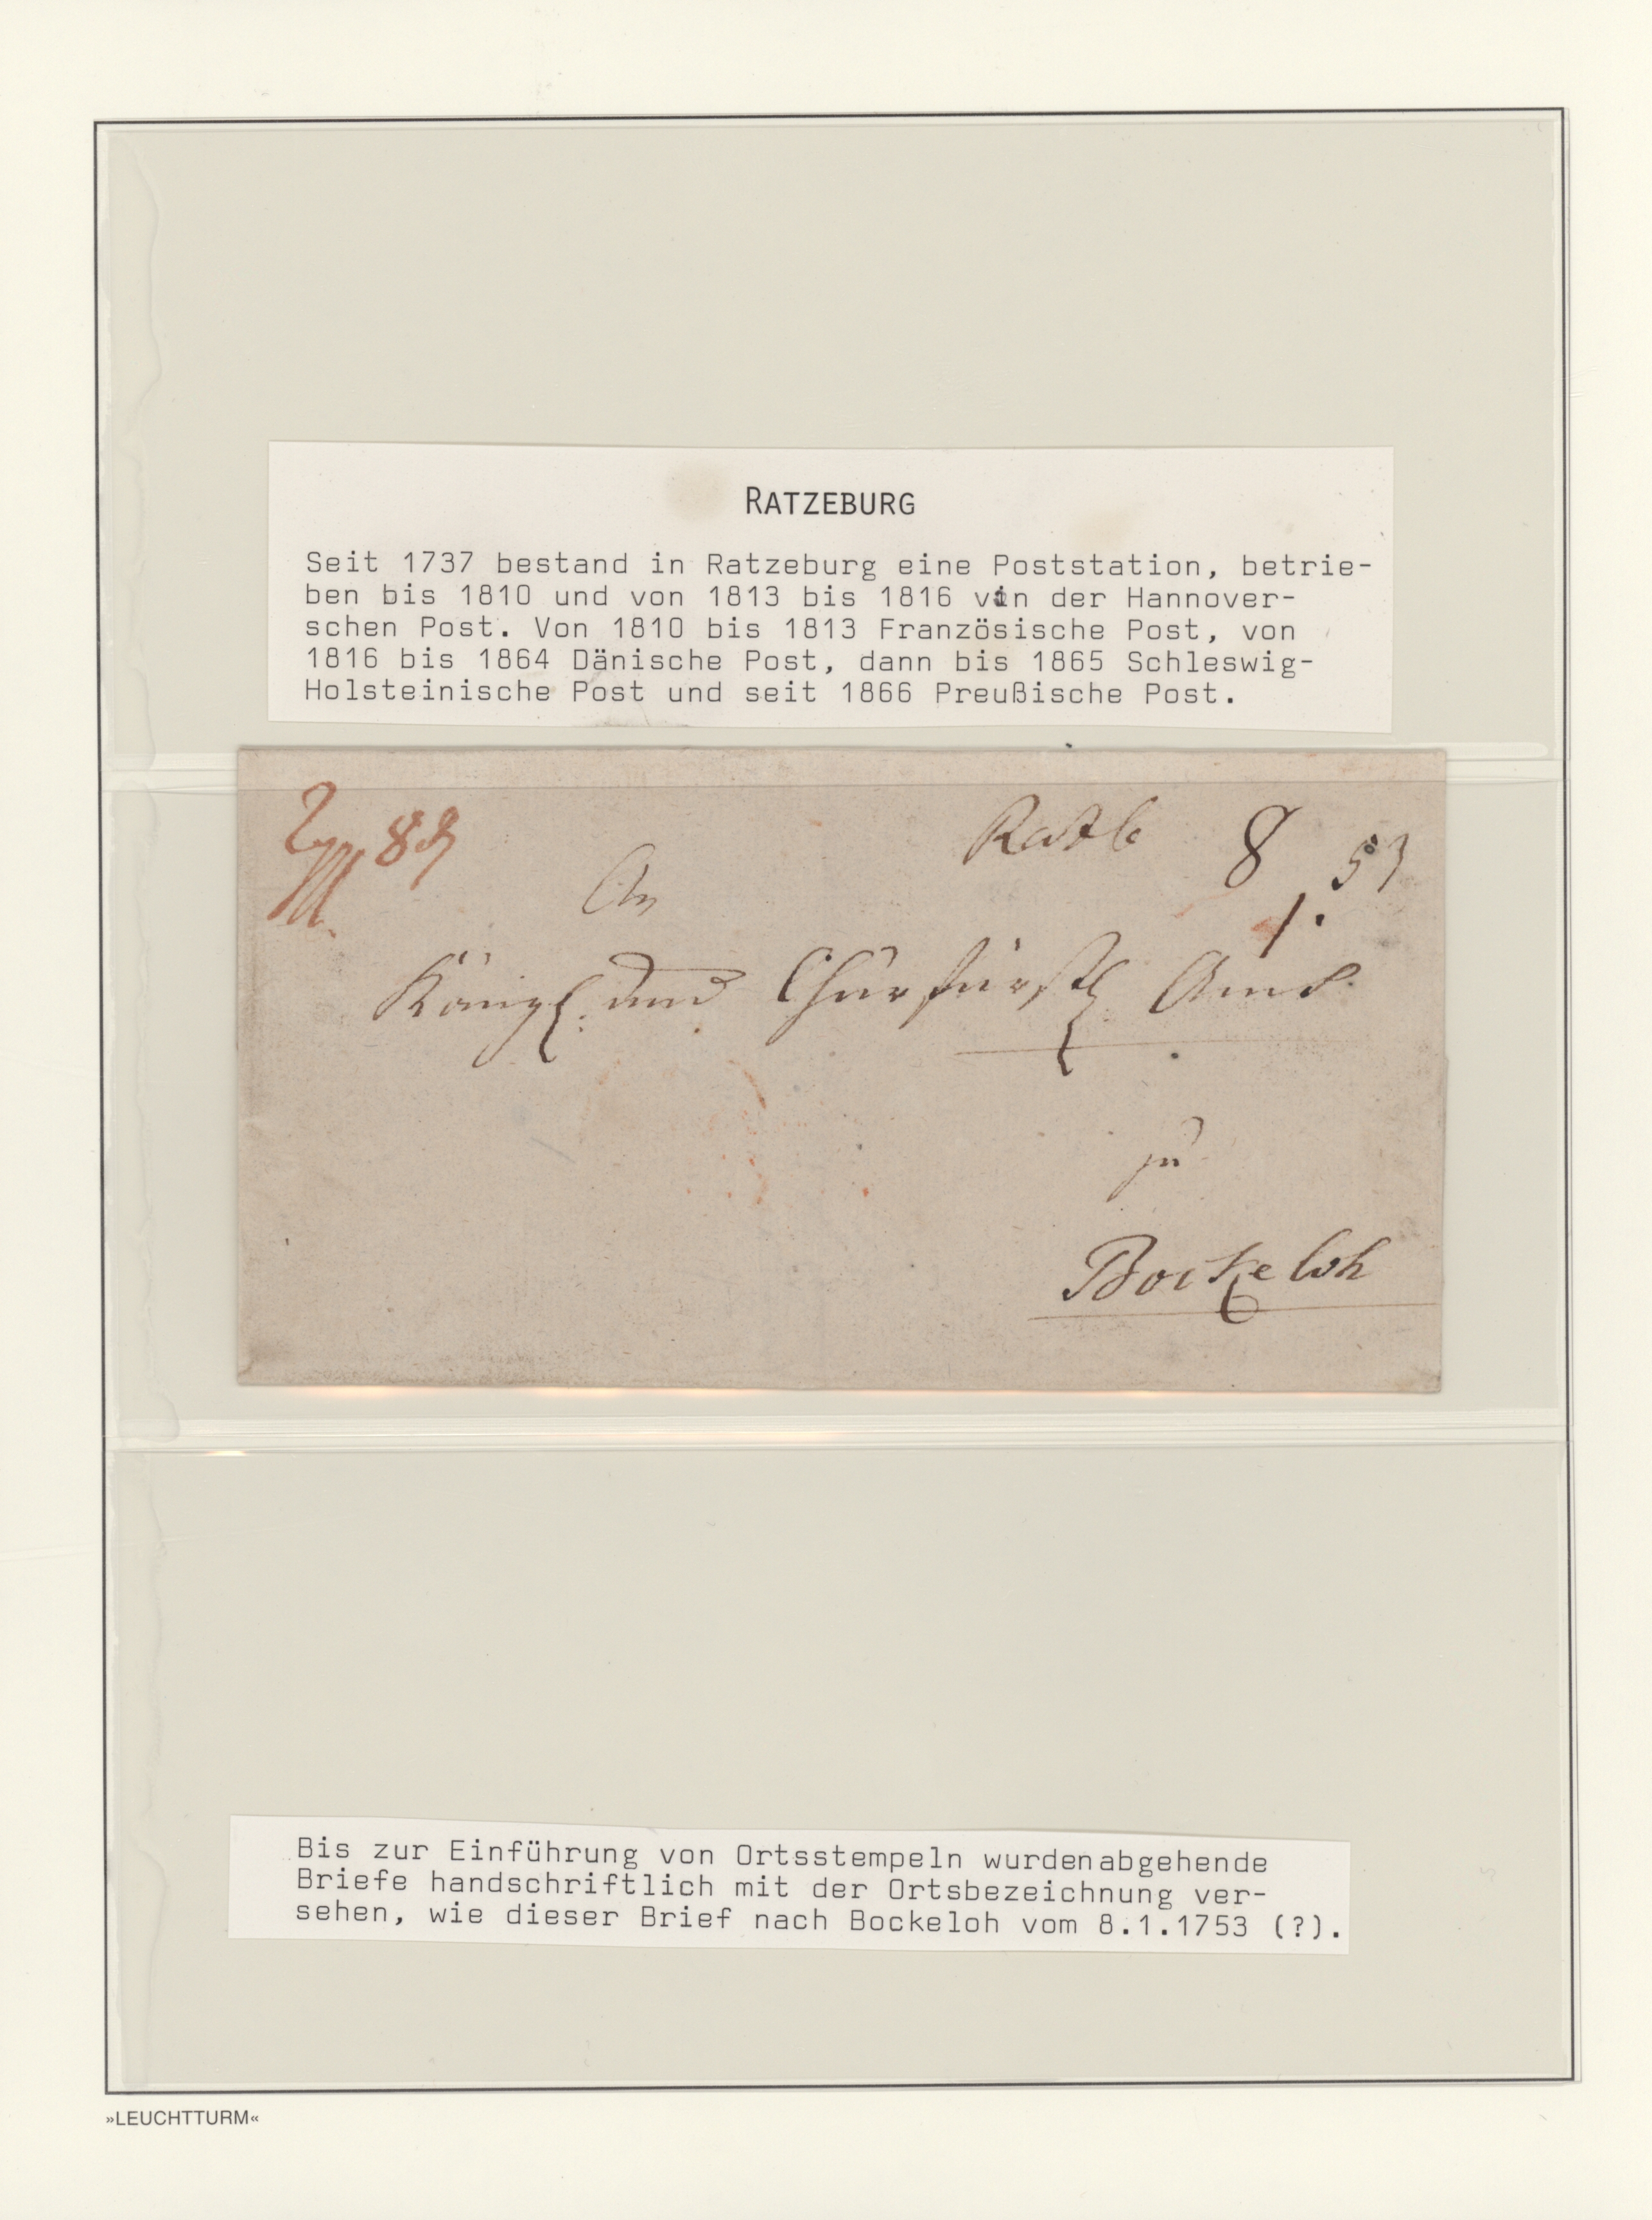 RATZEBURG
Seit 1737 bestand in Ratzeburg eine Poststation, betrie-
ben bis 1810 und von 1813 bis 1816 von der Hannover-
schen Post. Von 1810 bis 1813 Französische Post, von
1816 bis 1864 Dänische Post, dann bis 1865 Schleswig-
Holsteinische Post und seit 1866 Preußische Post.
Ratzb 8 53
1.
An
Königl. und Churfürstl. Amt
zu
Bockeloh
Bis zur Einführung von Ortsstempeln wurdenabgehende
Briefe handschriftlich mit der Ortsbezeichnung ver-
sehen, wie dieser Brief nach Bockeloh vom 8.1.1753 (?).
»LEUCHTTURM«